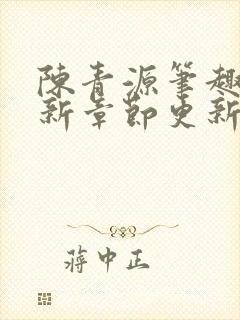 陳青源筆趣
新章節更新
蔣中正